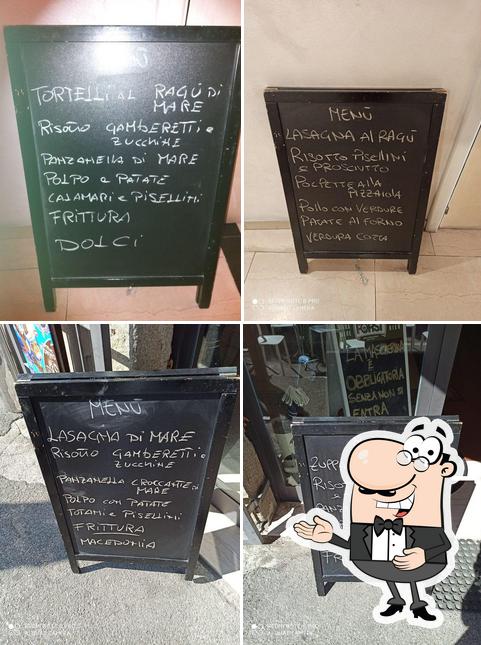 MENÙ
TORTELLI AL RAGÙ DI
MARE
RISOTTO GAMBERETTI e
ZUCCHINE
PANZANELLA DI MARE
POLPO e PATATE
CALAMARI e PISELLINI
FRITTURA
DOLCI
MENÙ
LASAGNA AI RAGÙ
RISOTTO PISELLINI
e PROSCIUTTO
POLPETTE ALLA
PIZZAIOLA
POLLO CON VERDURE
PATATE AL FORNO
VERDURA COTTA
MENÙ
LASAGNA DI MARE
RISOTTO GAMBERETTI e
ZUCCHINE
PANZANELLA CROCCANTE DI
MARE
POLPO CON PATATE
TOTANI e PISELLINI
FRITTURA
MACEDONIA
LA MASCHERINA
È
OBBLIGATORIA
SENZA NON SI
ENTRA
ZUPP
RISO